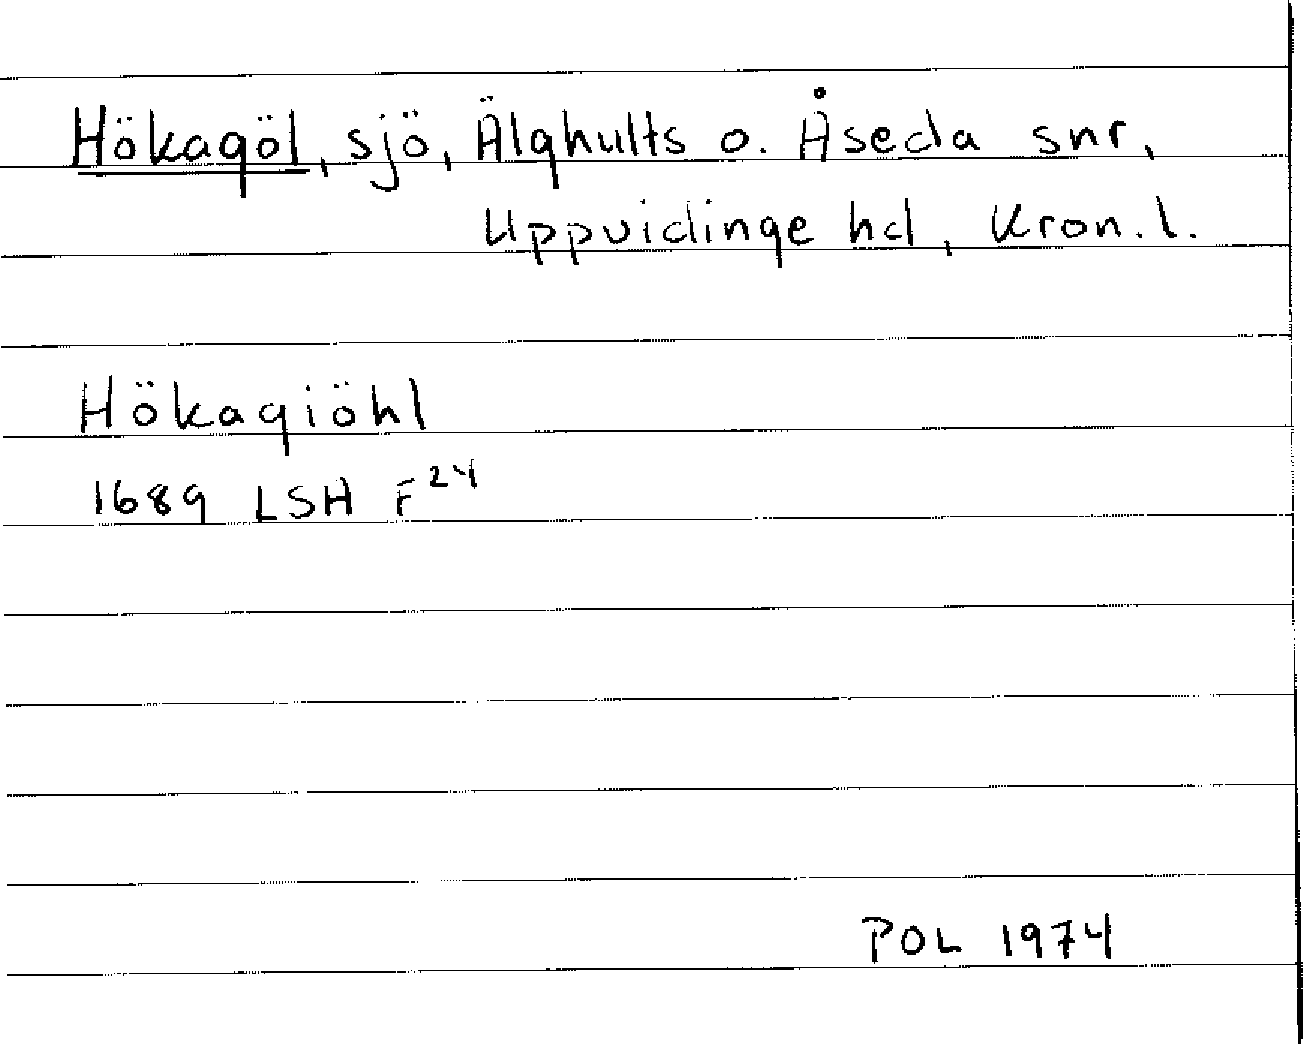 Hökagöl, sjö, Älghults o. Åseda snr,
Uppvidinge hd, Kron. l.
Hökagiöhl
1689 LSH F²⁴
POL 1974